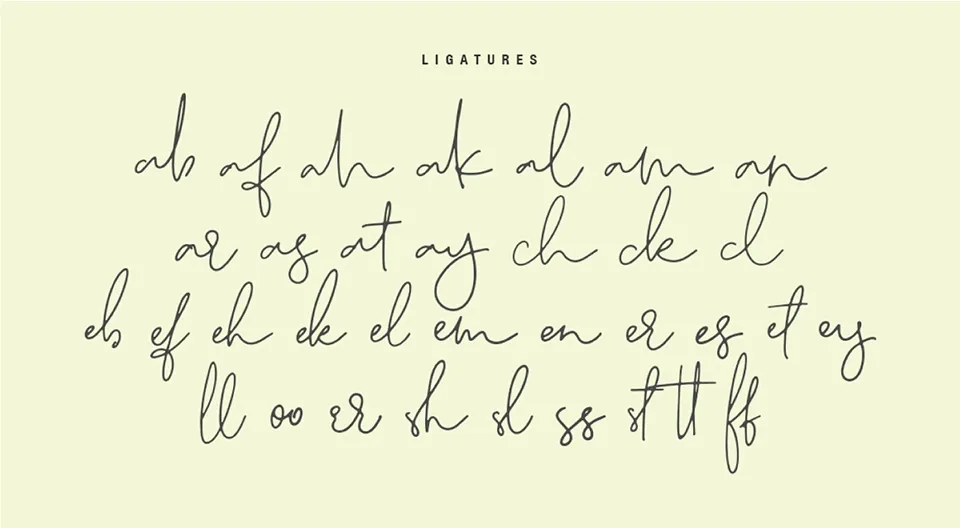 LIGATURES
ab af ah ak al am an
ar as at ay ch ck cl
eb ef eh ek el em en er es et ey
ll oo rr sh sl ss st tt ff